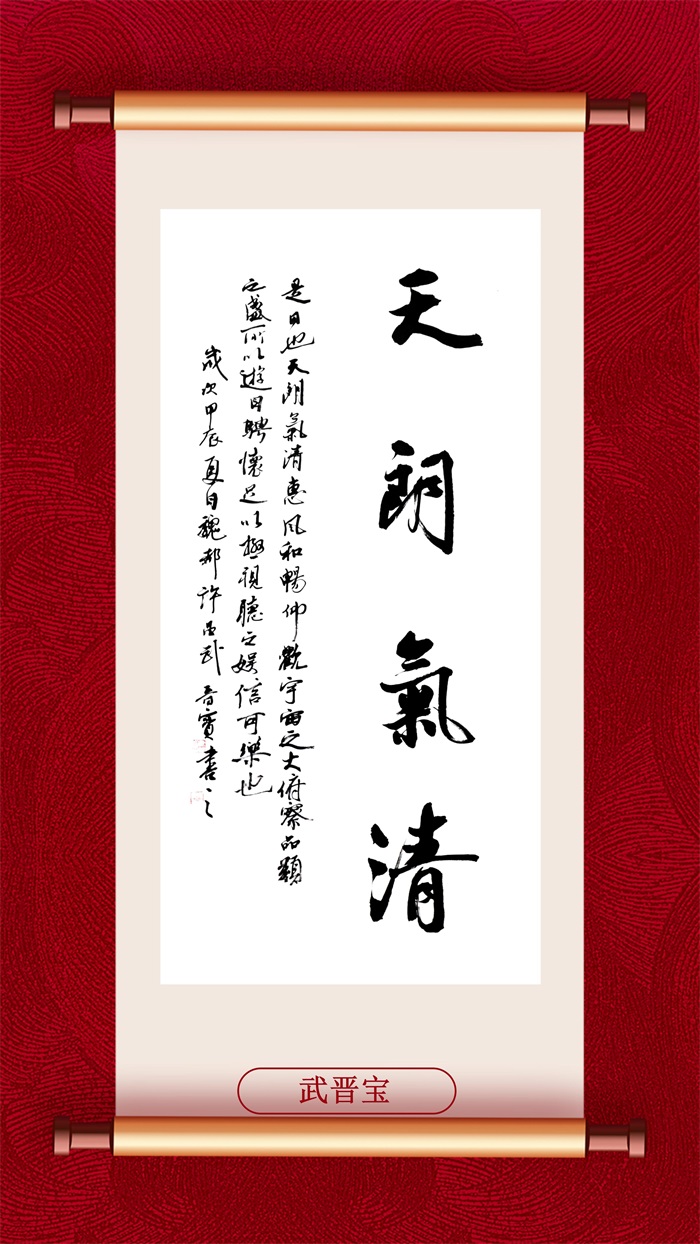 天朗氣清
是日也天朗氣清惠風和暢仰觀宇宙之大俯察品類
之盛所以遊目騁懷足以極視聽之娛信可樂也
歲次甲辰夏日魏都許昌武晋寶書之
武晋宝